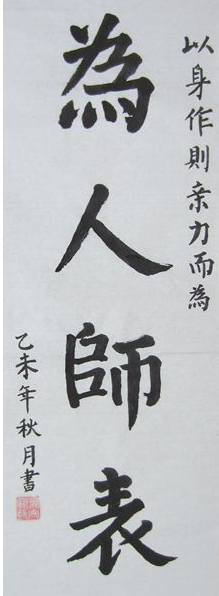 以身作則亲力而為
為人師表
乙未年秋月書